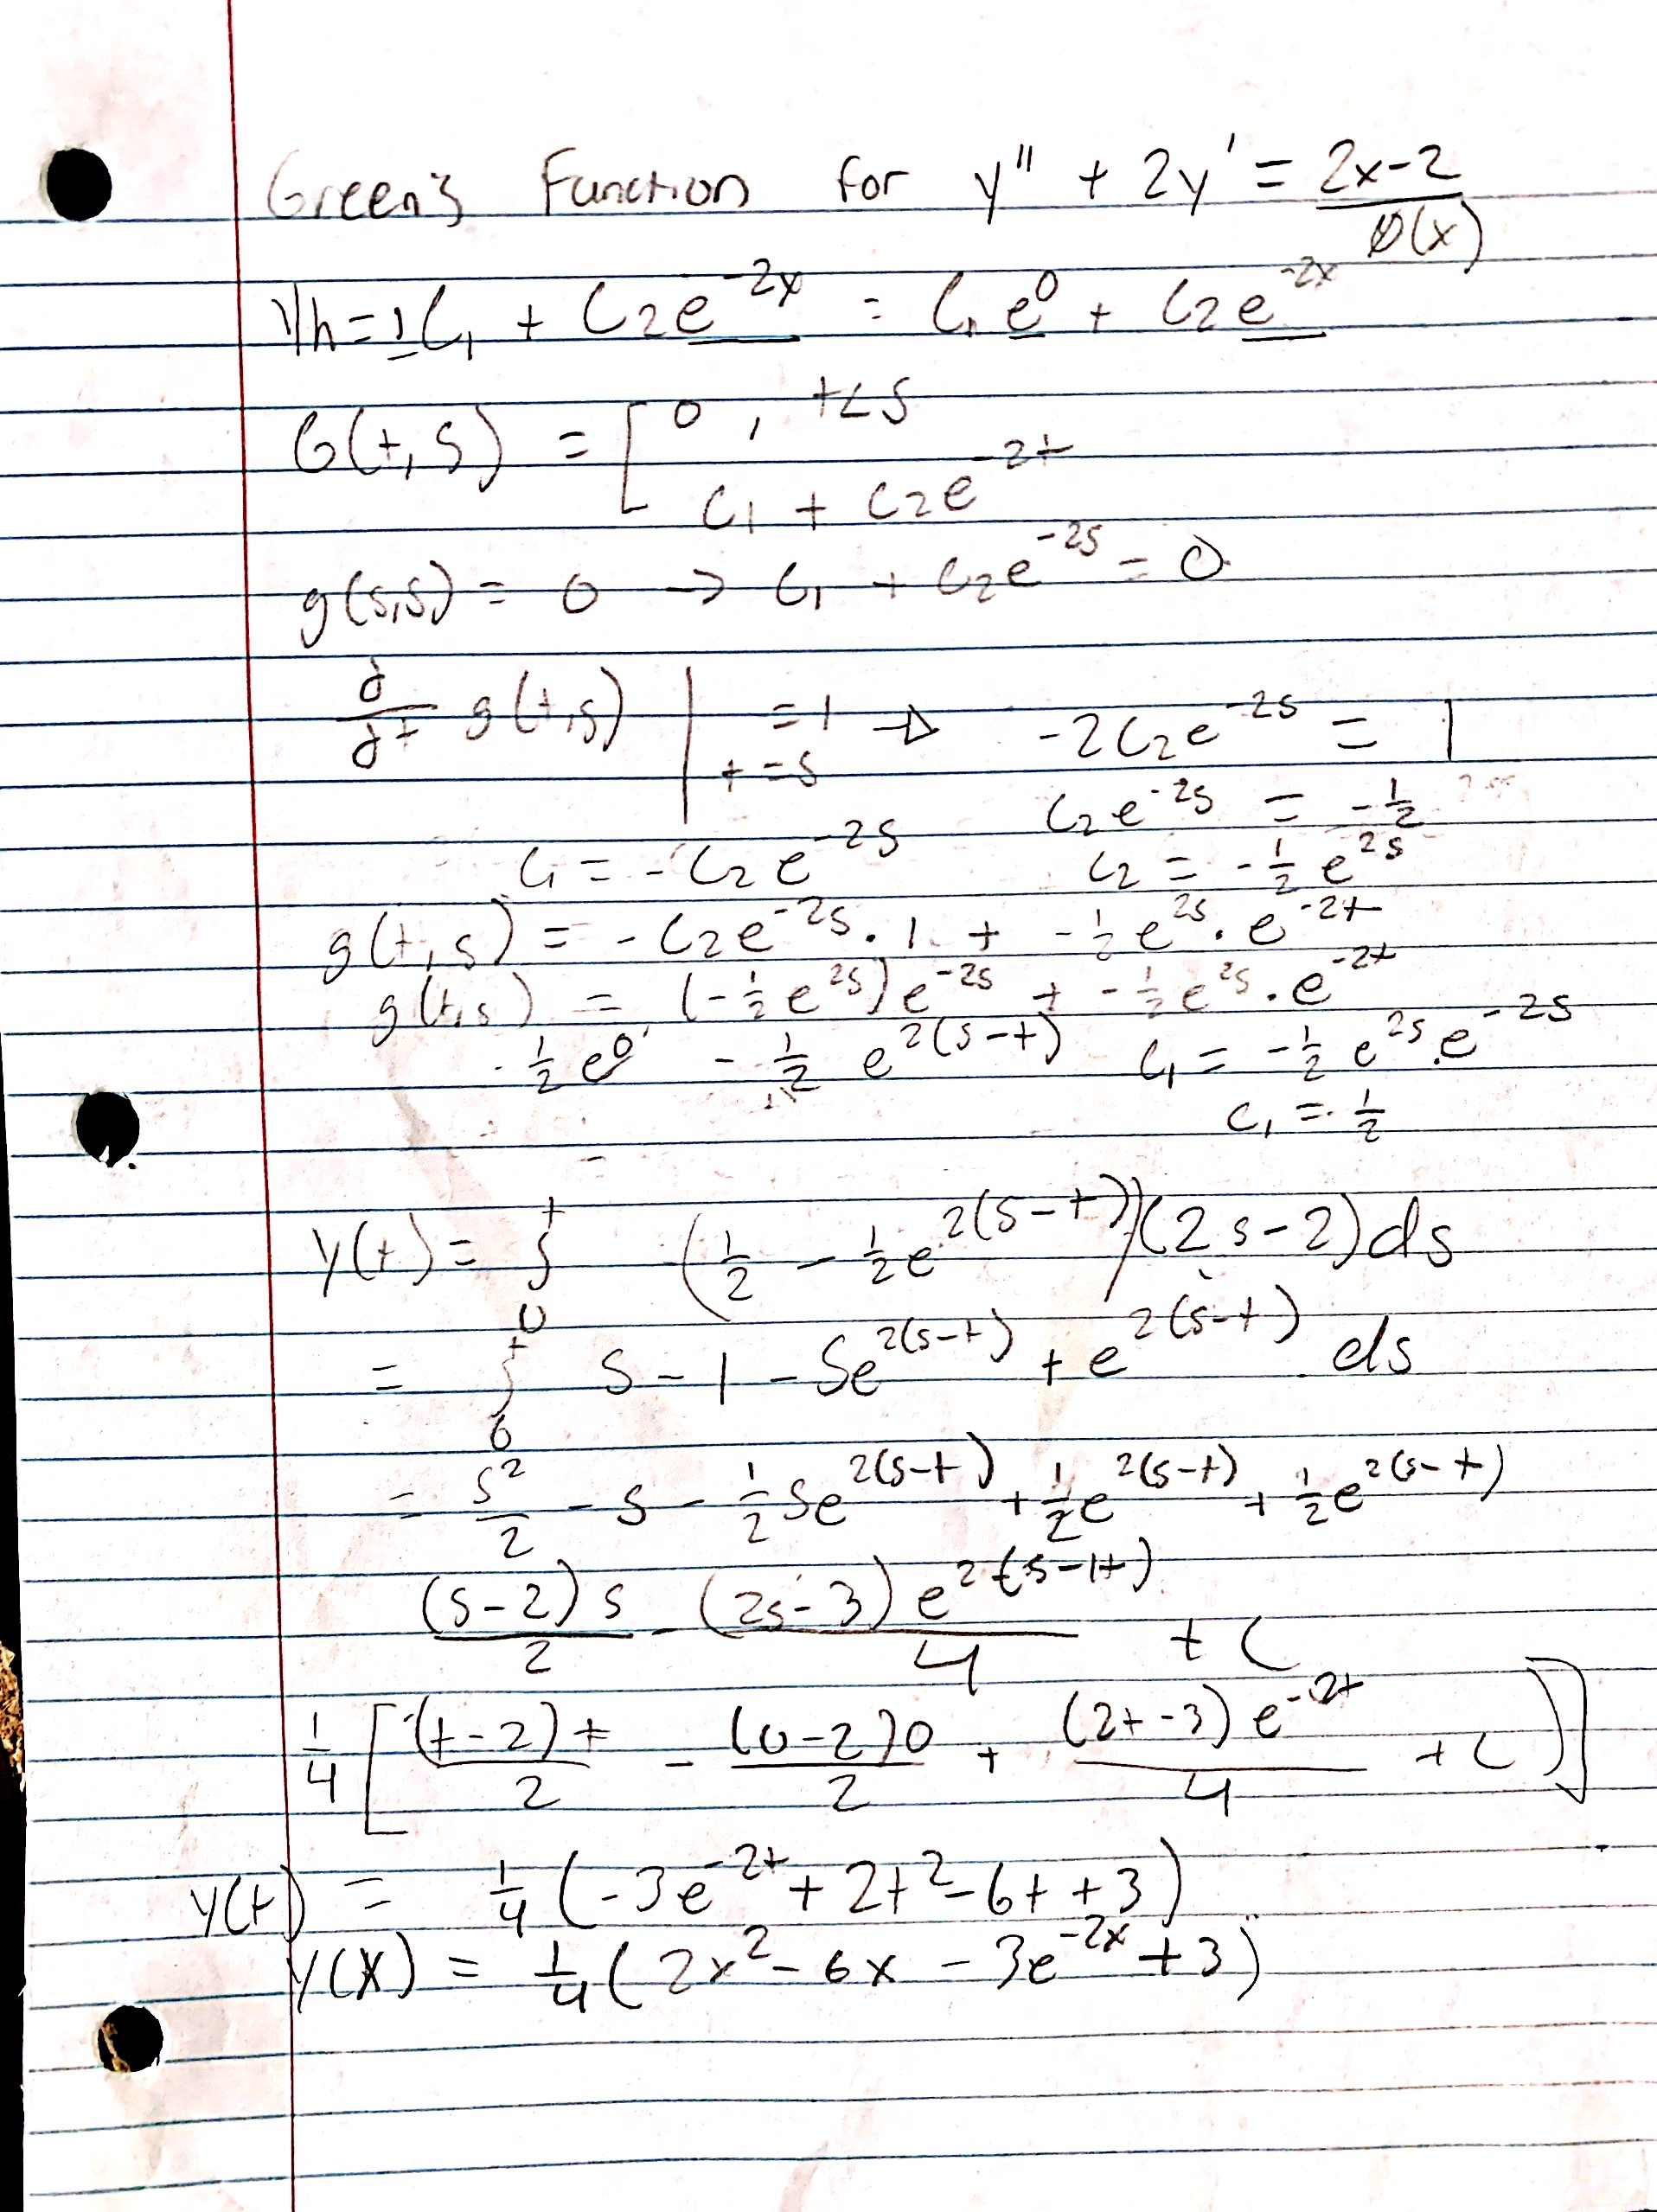 Green's Function for y'' + 2y' = 2x-2
φ(x)
Yh = 1C₁ + C₂e^-2x = C₁e^0 + C₂e^-2x
G(t,s) = [ 0 , t<s
C₁ + C₂e^-2t
g(s,s) = 0 → C₁ + C₂e^-2s = 0
d/dt g(t,s) | t=s = 1 → -2C₂e^-2s = 1
C₂e^-2s = -1/2
C₁ = -C₂e^-2s C₂ = -1/2 e^2s
g(t,s) = -C₂e^-2s · 1 + -1/2 e^2s · e^-2t
g(t,s) = (-1/2 e^2s)e^-2s + -1/2 e^2s · e^-2t
-1/2 e^0 - 1/2 e^2(s-t) C₁ = -1/2 e^2s · e^-2s
C₁ = 1/2
y(t) = ∫_0^t (1/2 - 1/2 e^2(s-t))(2s-2)ds
= ∫_0^t s - 1 - se^2(s-t) + e^2(s-t) ds
= s²/2 - s - 1/2 se^2(s-t) + 1/2 e^2(s-t) + 1/2 e^2(s-t)
(s-2)s/2 - (2s-3)e^2(s-1t)/4 + C
1/4 [ (t-2)t/2 - (0-2)0/2 + (2t-3)e^-2t/4 + C)]
y(t) = 1/4 (-3e^-2t + 2t² - 6t + 3)
y(x) = 1/4 (2x² - 6x - 3e^-2x + 3)